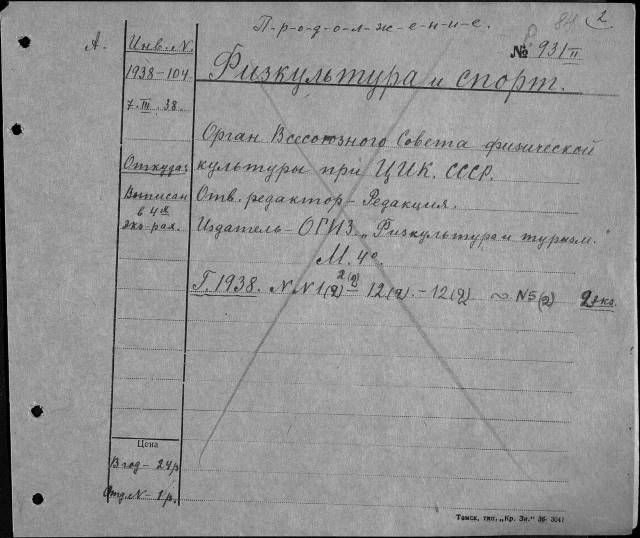 П-р-о-д-о-л-ж-е-н-и-е.
2
А.
Инв. N.
№ 931 II
1938-104
Физкультура и спорт.
7. III. 38.
Орган Всесоюзного Совета физической
Откуда:
культуры при ЦИК. СССР.
Выписан
Отв. редактор - Редакция.
в 4х
экз-рах.
Издатель - ОГИЗ. „Физкультура и туризм."
М. 4°.
Г. 1938. N.N 1(2) 2(2) - 12(2). - 12(2) ∾ N5(2) 2 экз.
Цена
В год - 24 р.
Отд. N - 1 р.
Томск, тип. „Кр. Зн." 36- 3041